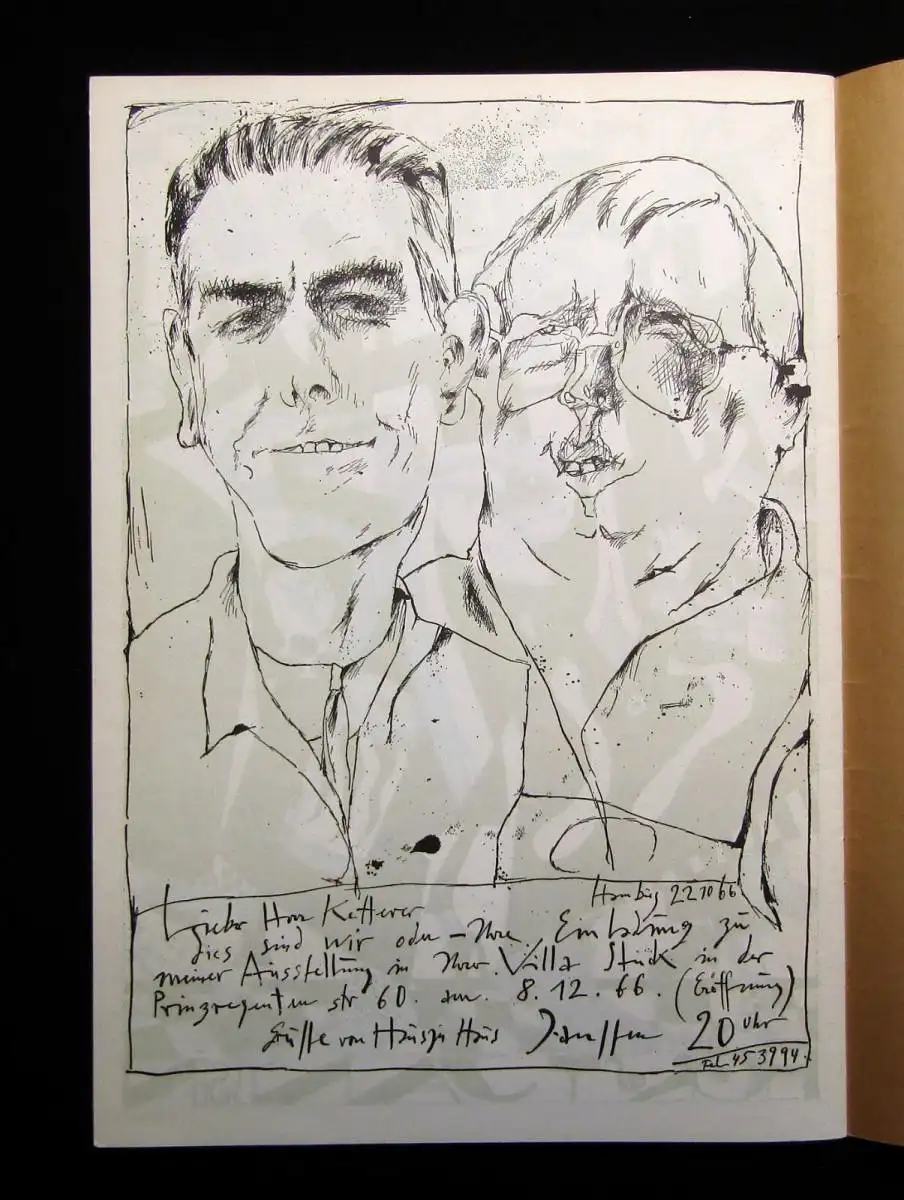 Hamburg 22 10 66
Lieber Herr Ketterer
dies sind wir oder – Ihre Einladung zu
meiner Ausstellung in Ihrer Villa Stuck in der
Prinzregenten str 60. am. 8.12.66. (Eröffnung)
20 Uhr
Grüsse von Haus zu Haus Janssen
Tel. 45 39 94.